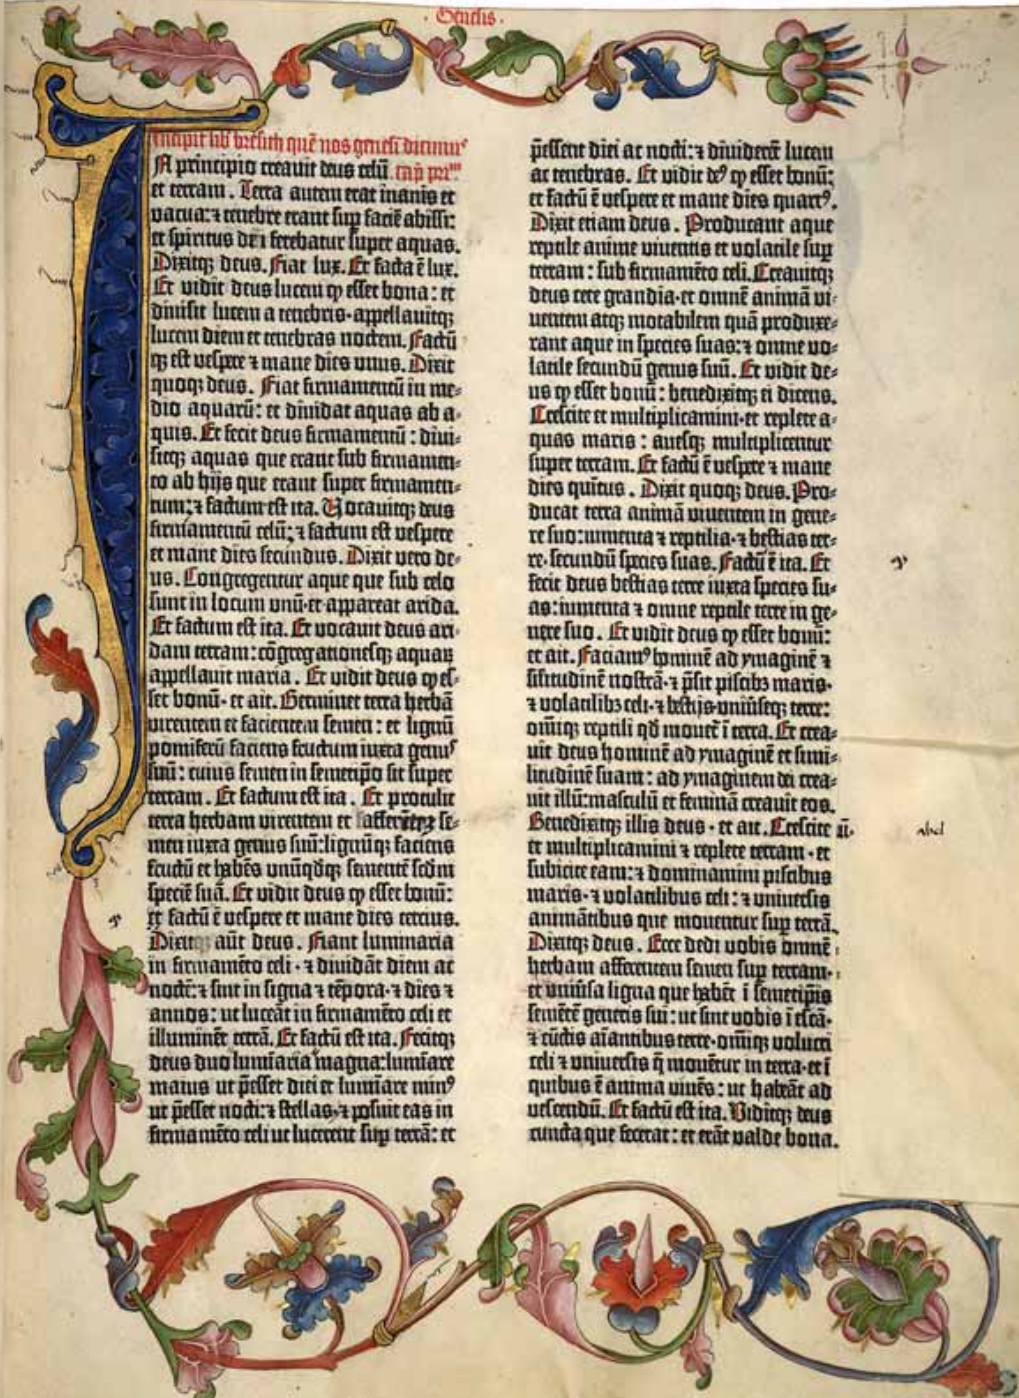 Genesis.
Incipit lib̃ bresith quē nos genesī dicimusˀ
IN principio creavit deus celū cap̃ prīᵐ
et terram. Terra autem erat inanis et
vacua: ⁊ tenebre erant sup̲ faciē abissi:
et spiritus dei ferebatur super aquas.
Dixitqꝫ deus. Fiat lux. Et facta ē lux.
Et vidit deus lucem ꝙ esset bona: et
divisit lucem a tenebris· appellavitqꝫ
lucem diem et tenebras noctem. Factū
qꝫ est vespere ⁊ mane dies unus. Dixit
quoqꝫ deus. Fiat firmamentū in me-
dio aquarū: et dividat aquas ab a-
quis. Et fecit deus firmamentū: divi-
sitqꝫ aquas que erant sub firmamen-
to ab hijs que erant super firmamen-
tum: ⁊ factum est ita. Vocavitqꝫ deus
firmamentū celū: ⁊ factum est vespere
et mane dies secundus. Dixit vero de-
us. Congregentur aque que sub celo
sunt in locum unū· et appareat arida.
Et factum est ita. Et vocavit deus ari-
dam terram: cōgregationesqꝫ aquaꝝ
appellavit maria. Et vidit deus ꝙ es-
set bonū· et ait. Germinet terra herbā
virentem et facientem semen: et lignū
pomiferū faciens fructum iuxta genusˀ
suū: cuius semen in semetip̄o sit super
terram. Et factum est ita. Et protulit
terra herbam virentem et afferētē se-
men iuxta genus suū: lignūqꝫ faciens
fructū et habēs unūq̄dqꝫ sementē scd̄m
speciē suā. Et vidit deus ꝙ esset bonū:
et factū ē vespere et mane dies tercius.
Dixitqꝫ aūt deus. Fiant luminaria
in firmamēto celi· ⁊ dividāt diem ac
noctē: ⁊ sint in signa ⁊ tēpora· ⁊ dies ⁊
annos: ut luceāt in firmamēto celi et
illuminēt terrā. Et factū est ita. Fecitqꝫ
deus duo luminaria magna: lumīare
maius ut p̄esset diei et lumīare minꝰ
ut p̄esset nocti: ⁊ stellas· ⁊ posuit eas in
firmamēto celi ut lucerent sup̲ terrā: et
p̄essent diei ac nocti: ⁊ dividerēt lucem
ac tenebras. Et vidit deꝰ ꝙ esset bonū:
et factū ē vespere et mane dies quartꝰ.
Dixit etiam deus. Producant aque
reptile anime viventis et volatile sup̲
terram: sub firmamēto celi. Creavitqꝫ
deus cete grandia· et omnē animā vi-
ventem atqꝫ motabilem quā produxe-
rant aque in species suas: ⁊ omne vo-
latile secundū genus suū. Et vidit de-
us ꝙ esset bonū: benedixitqꝫ ei dicens.
Crescite et multiplicamini· et replete a-
quas maris: avesqꝫ multiplicentur
super terram. Et factū ē vespere ⁊ mane
dies quītus. Dixit quoqꝫ deus. Pro-
ducat terra animā viventem in gene-
re suo: iumenta ⁊ reptilia· ⁊ bestias ter-
re· secundū species suas. Factū ē ita. Et
fecit deus bestias terre iuxta species su-
as: iumenta ⁊ omne reptile terre in ge-
nere suo. Et vidit deus ꝙ esset bonū:
et ait. Faciamꝰ hominē ad ymaginē ⁊
similitudinē nostrā· ⁊ p̄sit piscibꝫ maris·
⁊ volatilibꝫ celi· ⁊ bestijs· univ̄seqꝫ terre:
omīqꝫ reptili qd̄ movet̄ ī terra. Et crea-
vit deus hominē ad ymaginē et simi-
litudinē suam: ad ymaginem dei crea-
vit illū: masculū et feminā creavit eos.
Benedixitqꝫ illis deus· et ait. Crescite
et multiplicamini ⁊ replete terram· et
subicite eam: ⁊ dominamini piscibus
maris· ⁊ volatilibus celi: ⁊ universis
animātibus que moventur sup̲ terrā.
Dixitqꝫ deus. Ecce dedi vobis omnē
herbam afferentem semen sup̲ terram·
et univ̄sa ligna que habēt ī semetip̄is
semētē generis sui: ut sint vobis ī escā·
⁊ cūctis aīantibus terre· omīqꝫ volucri
celi ⁊ universis q̄ movētur in terra· et ī
quibus ē anima vivēs: ut habeāt ad
vescendū. Et factū est ita. Viditqꝫ deus
cuncta que fecerat: et erāt valde bona.